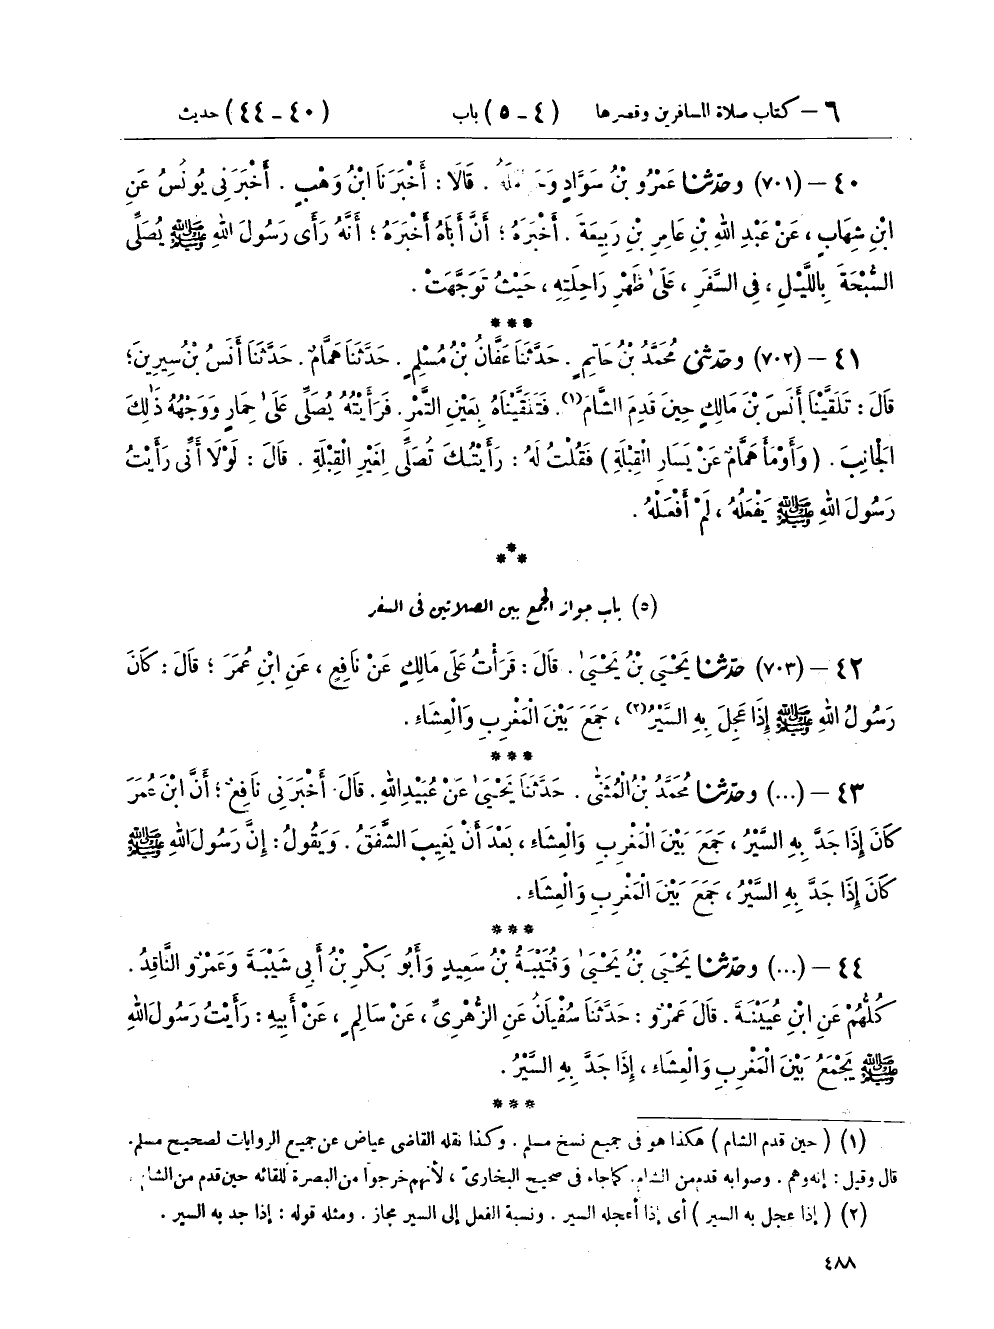 ٦ – كتاب صلاة المسافرين وقصرها (٤ – ٥) باب (٤٠ – ٤٤) حديث
٤٠ – (٧٠١) وحدثنا عَمْرُو بْنُ سَوَّادٍ وَحَرْمَلَةُ . قَالَا : أَخْبَرَنَا ابْنُ وَهْبٍ . أَخْبَرَنِى يُونُسُ عَنِ
ابْنِ شِهَابٍ ، عَنْ عَبْدِ اللهِ بْنِ عَامِرِ بْنِ رَبِيعَةَ . أَخْبَرَهُ ؛ أَنَّ أَبَاهُ أَخْبَرَهُ ؛ أَنَّهُ رَأَى رَسُولَ اللهِ ﷺ يُصَلِّى
السُّبْحَةَ بِاللَّيْلِ ، فِى السَّفَرِ ، عَلَىٰ ظَهْرِ رَاحِلَتِهِ ، حَيْثُ تَوَجَّهَتْ .
***
٤١ – (٧٠٢) وحدثنى مُحَمَّدُ بْنُ حَاتِمٍ . حَدَّثَنَا عَفَّانُ بْنُ مُسْلِمٍ . حَدَّثَنَا هَمَّامٌ . حَدَّثَنَا أَنَسُ بْنُ سِيرِينَ ؛
قَالَ : تَلَقَّيْنَا أَنَسَ بْنَ مَالِكٍ حِينَ قَدِمَ الشَّامَ(١) . فَتَلَقَّيْنَاهُ بِعَيْنِ التَّمْرِ . فَرَأَيْتُهُ يُصَلِّى عَلَىٰ حِمَارٍ وَوَجْهُهُ ذَٰلِكَ
الْجَانِبَ . ( وَأَوْمَأَ هَمَّامٌ عَنْ يَسَارِ الْقِبْلَةِ ) فَقُلْتُ لَهُ : رَأَيْتُكَ تُصَلِّى لِغَيْرِ الْقِبْلَةِ . قَالَ : لَوْلَا أَنِّى رَأَيْتُ
رَسُولَ اللهِ ﷺ يَفْعَلُهُ ، لَمْ أَفْعَلْهُ .
***
(٥) باب جواز الجمع بين الصلاتين فى السفر
٤٢ – (٧٠٣) حدثنا يَحْيَى بْنُ يَحْيَىٰ . قَالَ : قَرَأْتُ عَلَى مَالِكٍ عَنْ نَافِعٍ ، عَنِ ابْنِ عُمَرَ ؛ قَالَ : كَانَ
رَسُولُ اللهِ ﷺ إِذَا عَجِلَ بِهِ السَّيْرُ(٢) ، جَمَعَ بَيْنَ الْمَغْرِبِ وَالْعِشَاءِ .
***
٤٣ – (...) وحدثنا مُحَمَّدُ بْنُ الْمُثَنَّىٰ . حَدَّثَنَا يَحْيَىٰ عَنْ عُبَيْدِ اللهِ . قَالَ أَخْبَرَنِى نَافِعٌ ؛ أَنَّ ابْنَ عُمَرَ
كَانَ إِذَا جَدَّ بِهِ السَّيْرُ ، جَمَعَ بَيْنَ الْمَغْرِبِ وَالْعِشَاءِ ، بَعْدَ أَنْ يَغِيبَ الشَّفَقُ . وَيَقُولُ : إِنَّ رَسُولَ اللهِ ﷺ
كَانَ إِذَا جَدَّ بِهِ السَّيْرُ ، جَمَعَ بَيْنَ الْمَغْرِبِ وَالْعِشَاءِ .
***
٤٤ – (...) وحدثنا يَحْيَى بْنُ يَحْيَىٰ وَقُتَيْبَةُ بْنُ سَعِيدٍ وَأَبُو بَكْرِ بْنُ أَبِى شَيْبَةَ وَعَمْرٌو النَّاقِدُ .
كُلُّهُمْ عَنِ ابْنِ عُيَيْنَةَ . قَالَ عَمْرٌو : حَدَّثَنَا سُفْيَانُ عَنِ الزُّهْرِىِّ ، عَنْ سَالِمٍ ، عَنْ أَبِيهِ : رَأَيْتُ رَسُولَ اللهِ
ﷺ يَجْمَعُ بَيْنَ الْمَغْرِبِ وَالْعِشَاءِ ، إِذَا جَدَّ بِهِ السَّيْرُ .
***
(١) ( حين قدم الشام ) هكذا هو فى جميع نسخ مسلم . وكذا نقله القاضى عياض عن جميع الروايات لصحيح مسلم .
قال وقيل : إنه وهم . وصوابه قدم من الشام . كما جاء فى صحيح البخارىّ ، لأنهم خرجوا من البصرة للقائه حين قدم من الشام .
(٢) ( إذا عجل به السير ) أى إذا أعجله السير . ونسبة الفعل إلى السير مجاز . ومثله قوله : إذا جد به السير .
٤٨٨